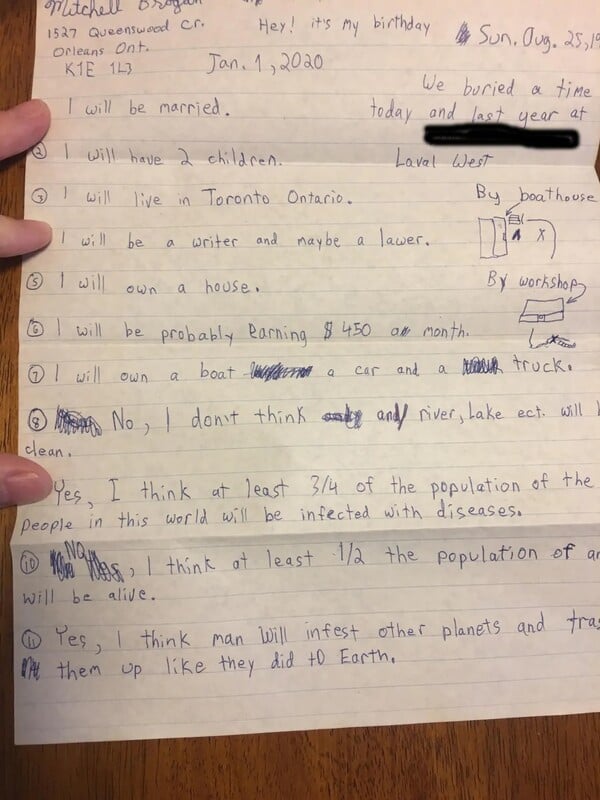 Mitchell Brogan
1527 Queenswood Cr.
Orleans Ont.
K1E 1L3
Hey! it's my birthday
Sun. Aug. 25, 19
Jan. 1, 2020
We buried a time
today and last year at
Laval West
I will be married.
② I will have 2 children.
③ I will live in Toronto Ontario.
By boathouse
X
I will be a writer and maybe a lawer.
⑤ I will own a house.
By workshop
x
⑥ I will be probably earning $ 450 a month.
⑦ I will own a boat a car and a truck.
⑧ No, I don't think any river, Lake ect. will
clean.
Yes, I think at least 3/4 of the population of the
people in this world will be infected with diseases.
⑩ No, I think at least 1/2 the population of
will be alive.
⑪ Yes, I think man will infest other planets and tras
them up like they did to Earth.